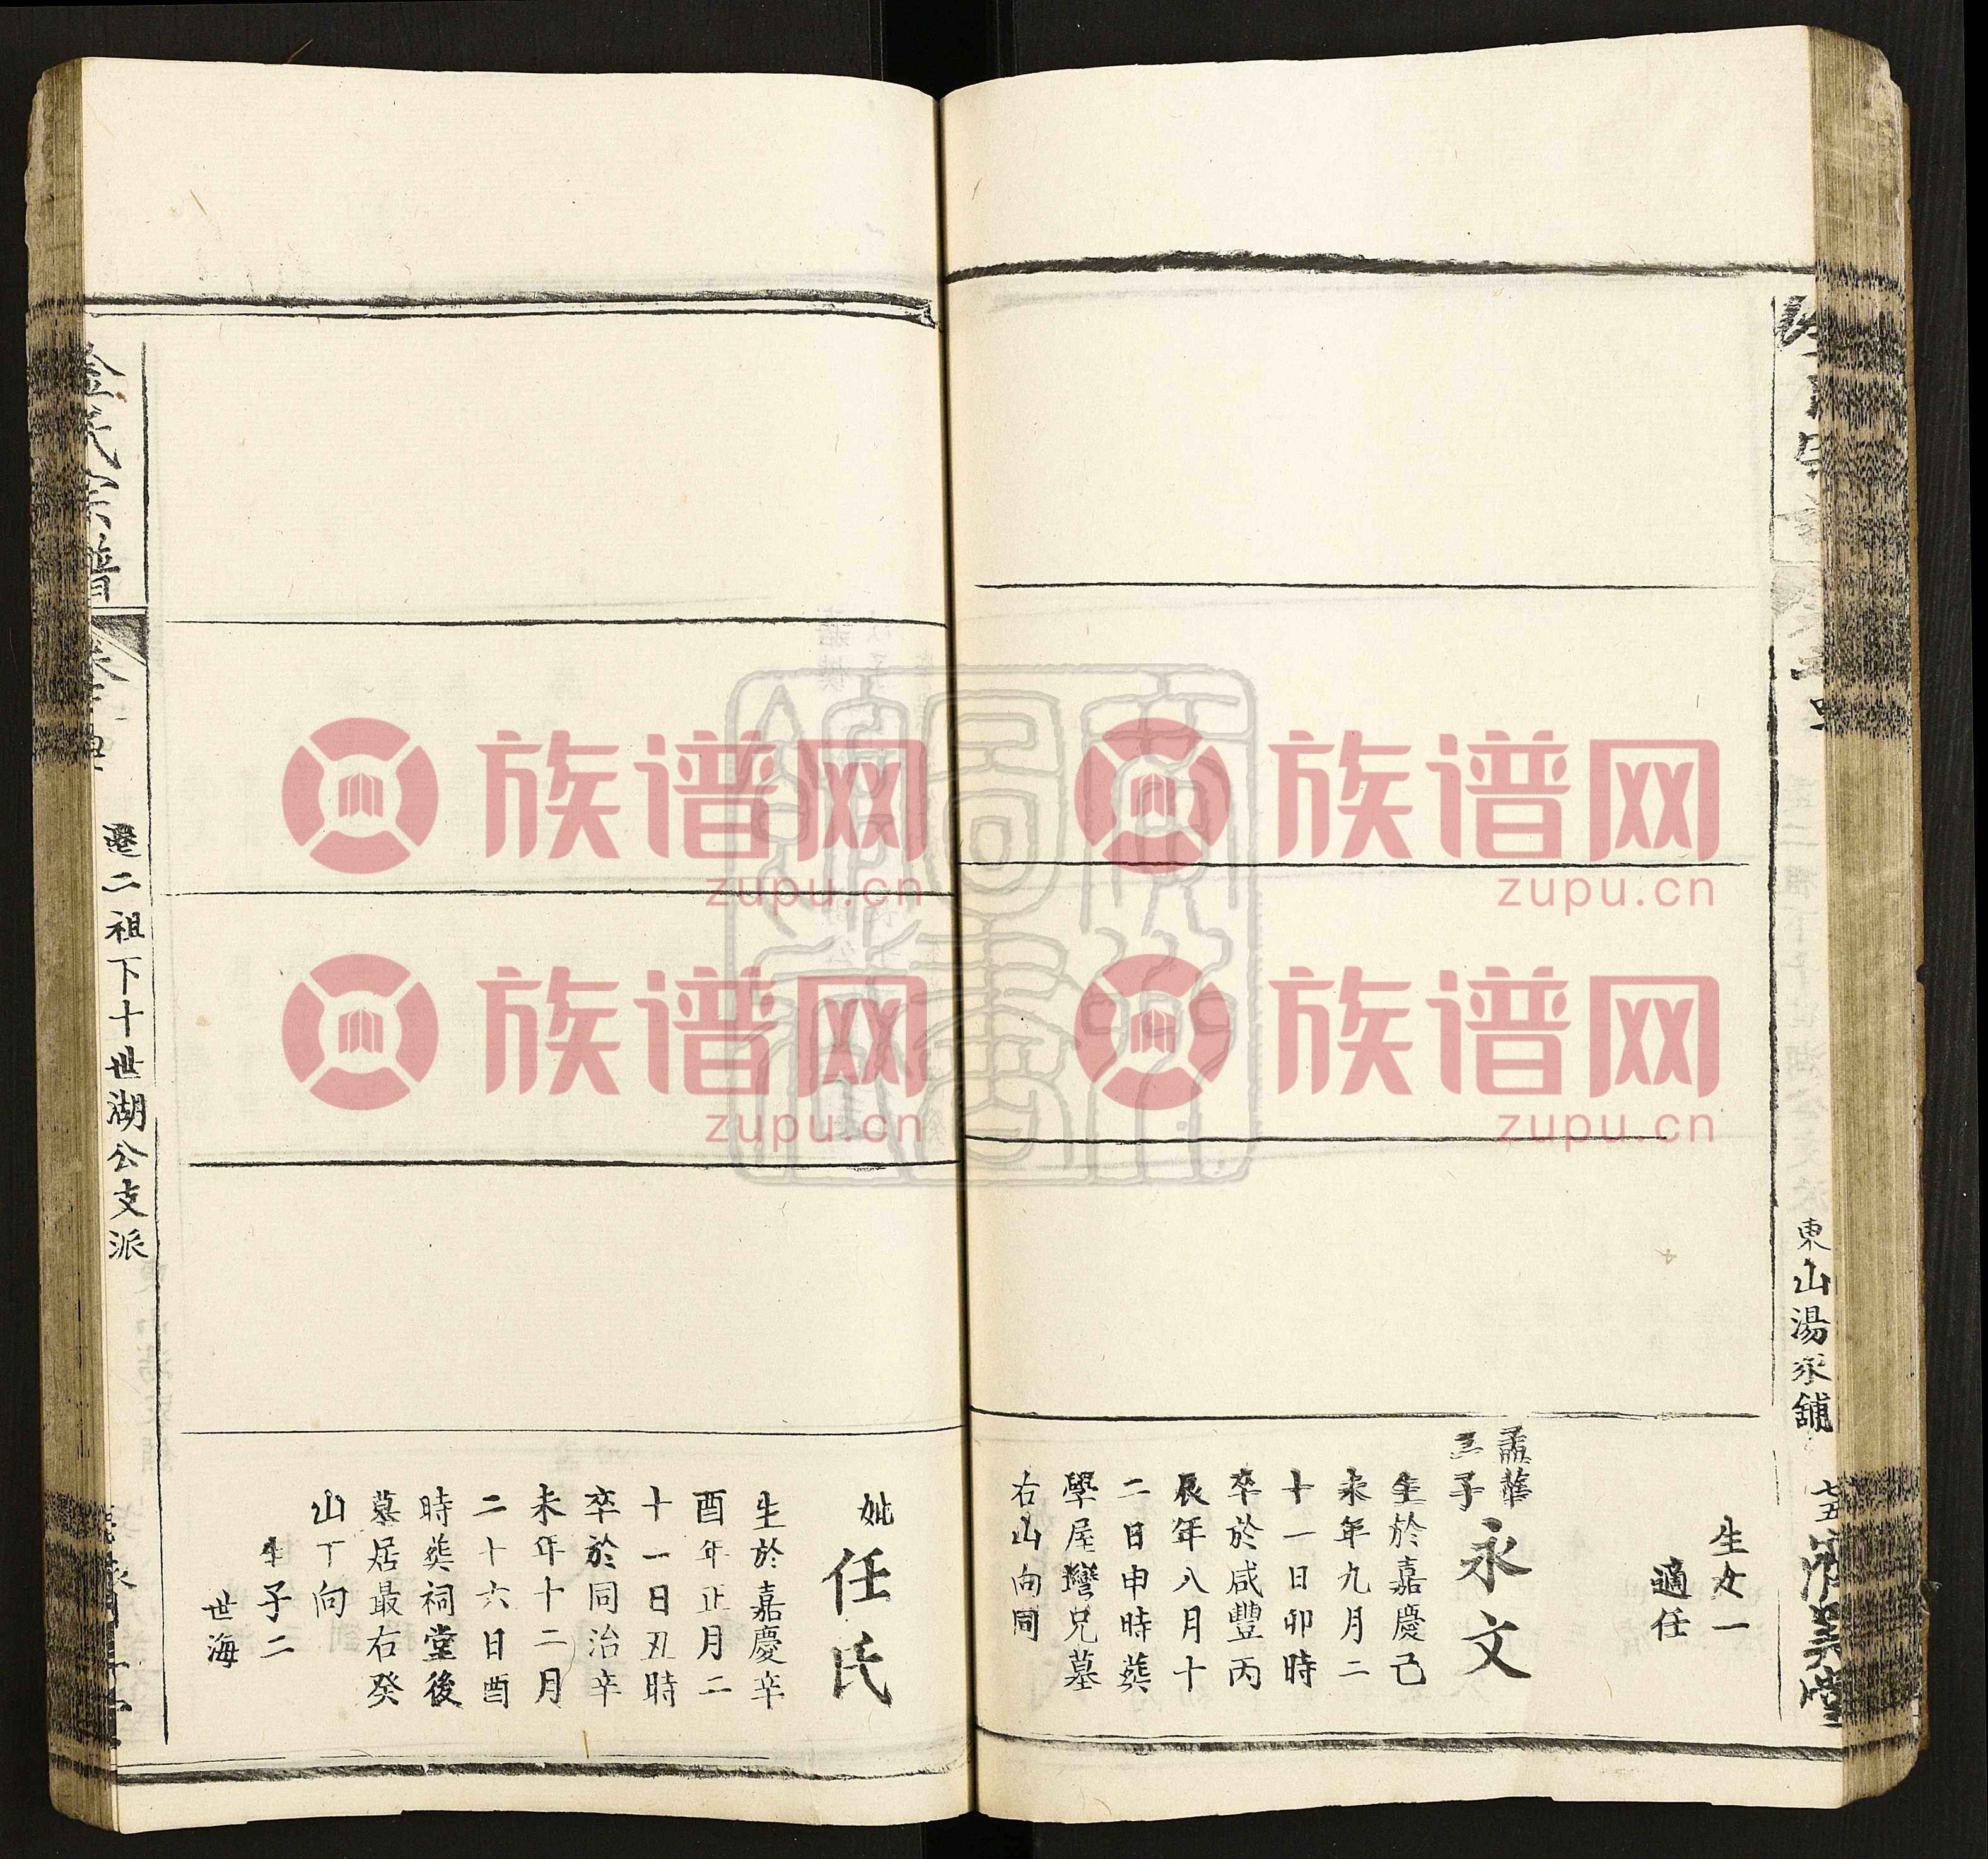 東山湯家舖
七五
生女一
適任
孟華
三子
永文
生於嘉慶己
未年九月二
十一日卯時
卒於咸豐丙
辰年八月十
二日申時葬
學屋灣兄墓
右山向同
妣
任氏
生於嘉慶辛
酉年正月二
十一日丑時
卒於同治辛
未年十二月
二十六日酉
時葬祠堂後
墓居最右癸
山丁向
生子二
世海
遷二祖下十世湖公支派
族谱网
zupu.cn
族谱网
zupu.cn
族谱网
zupu.cn
族谱网
zupu.cn